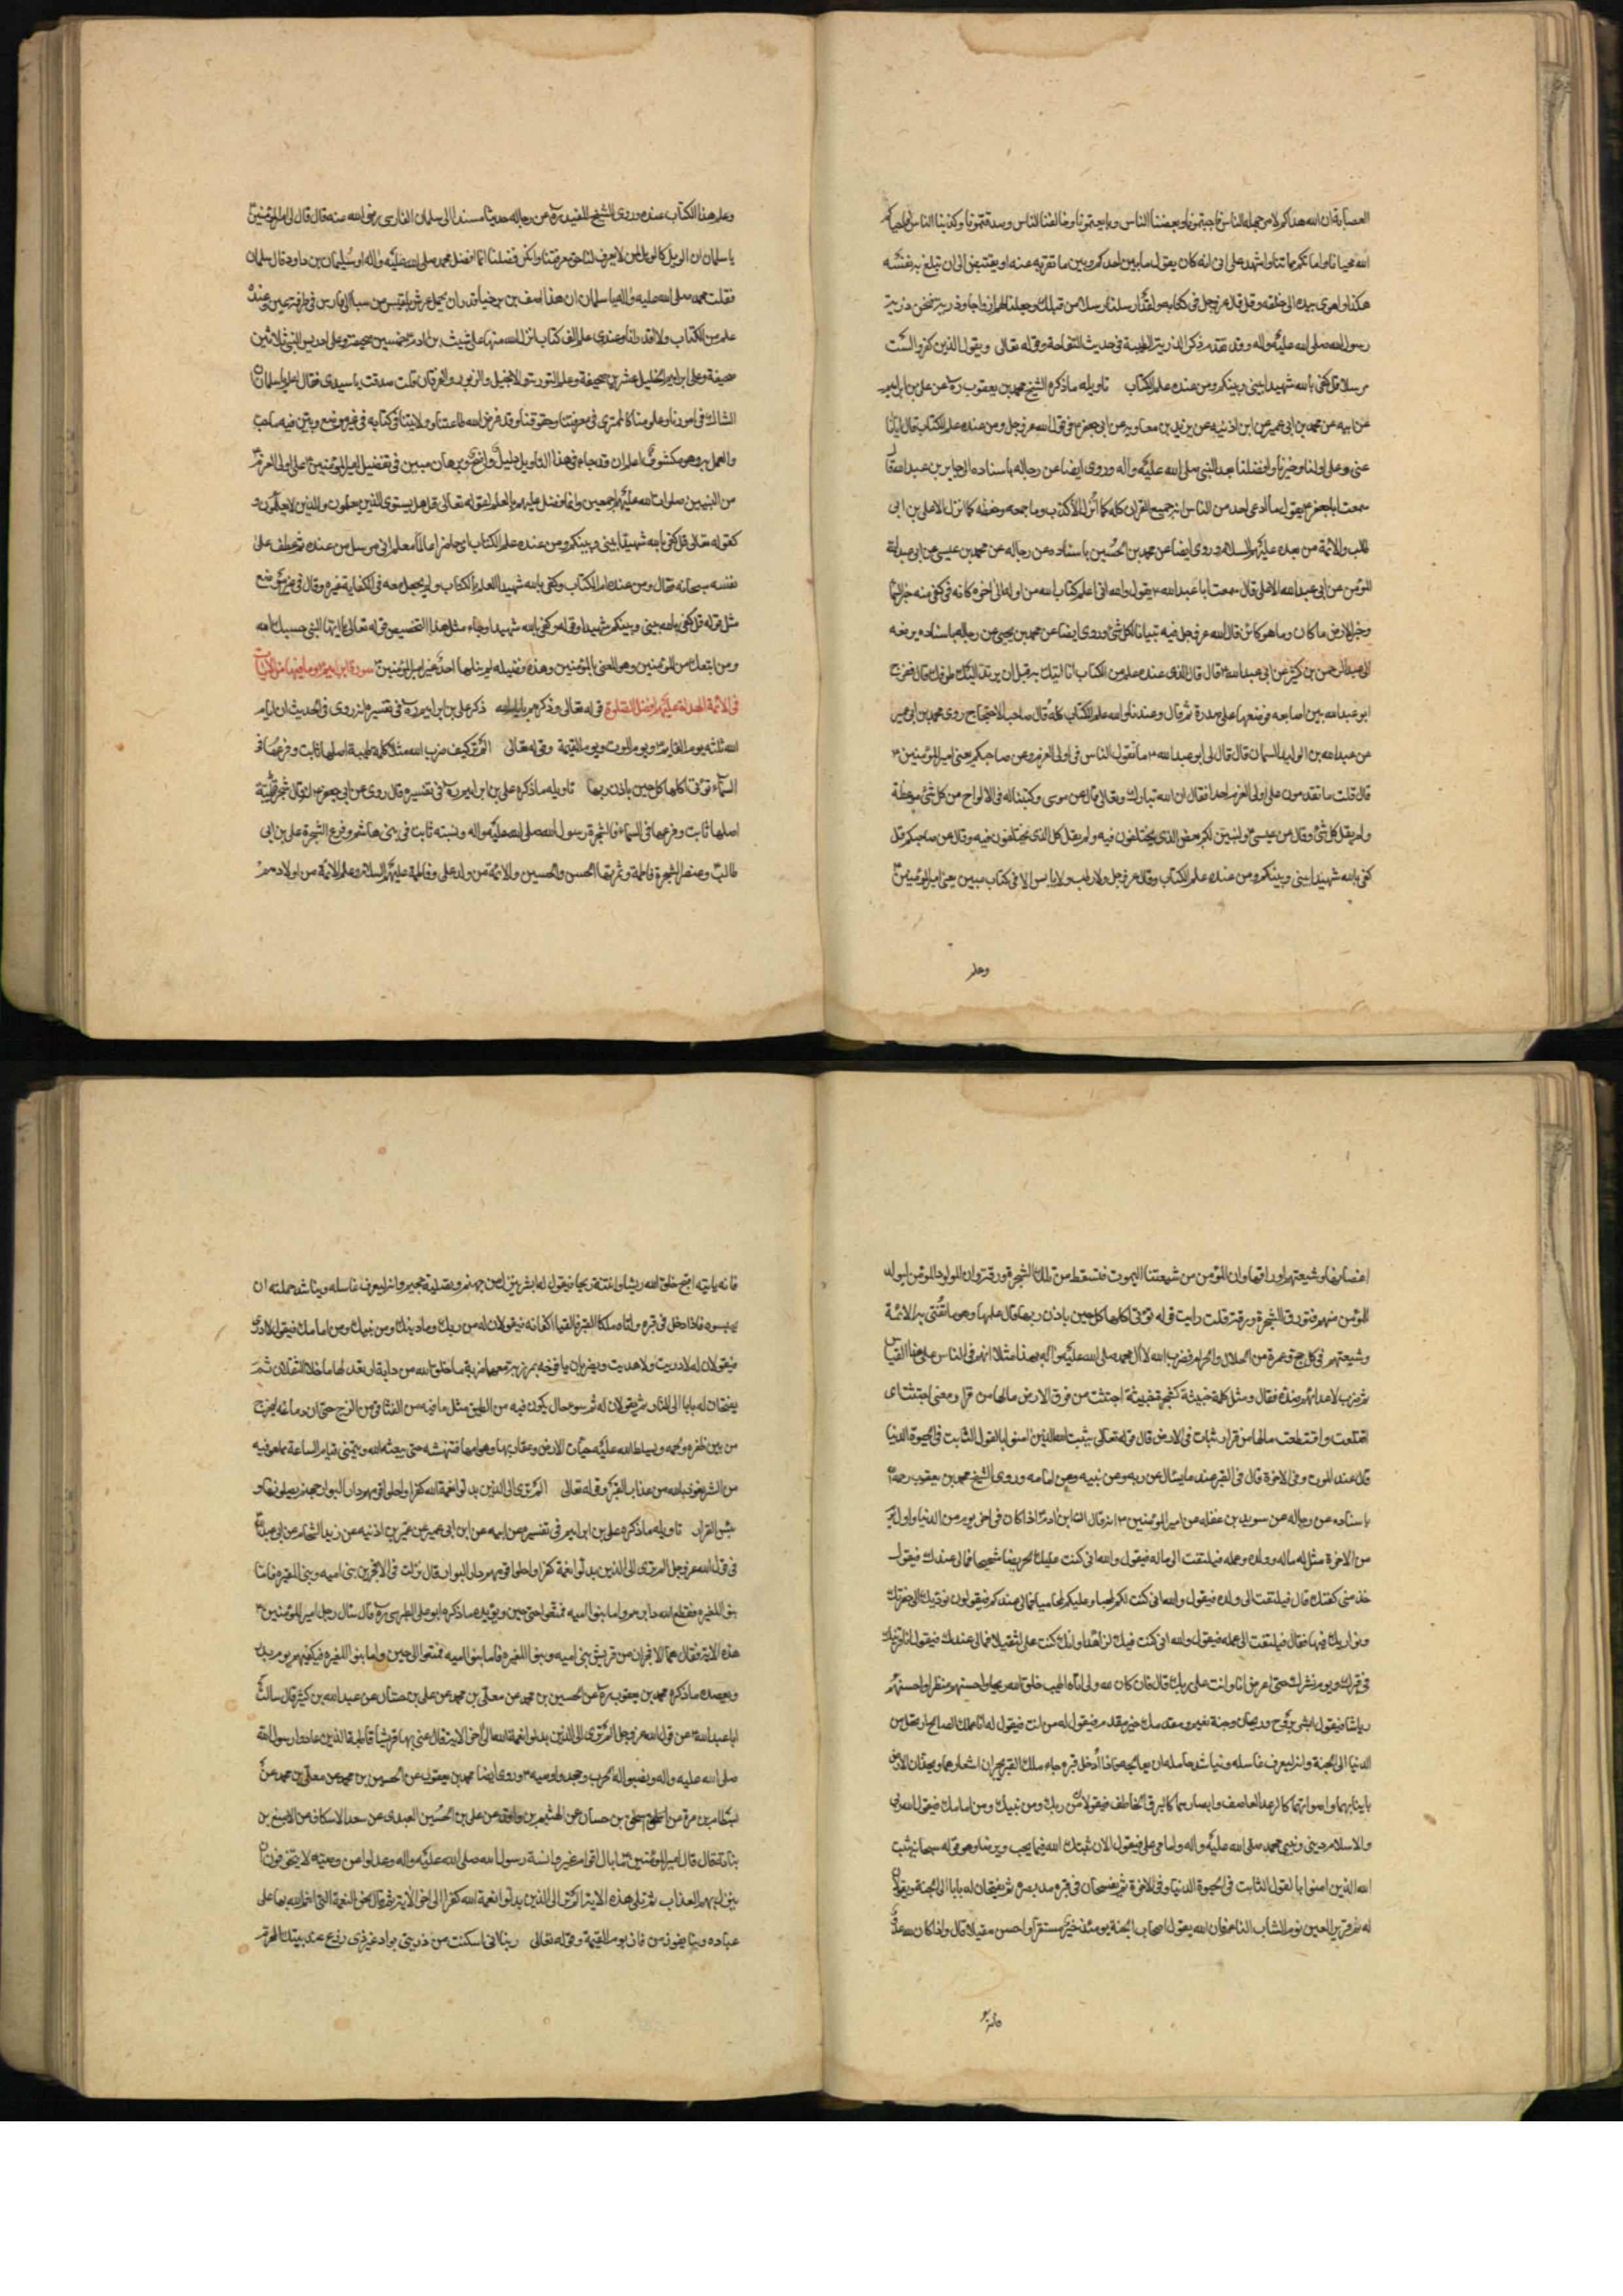 العصابة ان الله هداكم لامر جهله الناس فاجبتمونا وبغضنا الناس وبايعتمونا وخالفنا الناس وصدقتمونا وكذبنا الناس فاحياكم
الله محيانا واماتكم مماتنا واشهد على ابى انه كان يقول ما بين احدكم وبين ما تقر به عينه او يغتبط الا ان تبلغ نفسه
هكذا واهوى بيده الى حلقه وقد قال عز وجل فى كتابه ولقد ارسلنا رسلا من قبلك وجعلنا لهم ازواجا وذرية فنحن ذرية
رسول الله صلى الله عليه واله وقد تقدم ذكر الذرية الطيبة فى حديث التفاحة وقوله تعالى ويقول الذين كفروا لست
مرسلا قل كفى بالله شهيدا بينى وبينكم ومن عنده علم الكتاب تاويله ما ذكره الشيخ محمد بن يعقوب ره عن على بن ابراهيم
عن ابيه عن محمد بن ابى عمير عن ابن اذينه عن بريد بن معاويه عن ابى جعفر ع فى قول الله عز وجل ومن عنده علم الكتاب قال ايانا
عنى وعلى اولنا وخيرنا وافضلنا بعد النبى صلى الله عليه واله وروى ايضا عن رجاله باسناده الى جابر بن عبد الله قال
سمعت ابا جعفر ع يقول ما ادعى احد من الناس انه جمع القران كله كما انزل الا كذب وما جمعه وحفظه كما انزل الا على بن ابى
طالب والائمة من بعده عليهم السلام وروى ايضا عن محمد بن الحسين باسناده عن رجاله عن محمد بن عيسى عن ابى عبد الله
المؤمن عن ابى عبد الاعلى قال سمعت ابا عبد الله ع يقول والله انى اعلم كتاب الله من اوله الى اخره كانه فى كفى فيه خبر السما
وخبر الارض ما كان وما هو كائن قال الله عز وجل فيه تبيان كل شئ وروى ايضا عن محمد بن يحيى عن رجاله باسناده يرفعه
الى عبد الرحمن بن كثير عن ابى عبد الله ع قال قال الذى عنده علم من الكتاب انا اتيك به قبل ان يرتد اليك طرفك قال ففرج
ابو عبد الله بين اصابعه فوضعها على صدره ثم قال وعندنا والله علم الكتاب كله قال صاحب الاحتجاج روى محمد بن ابى عمير
عن عبد الله بن الوليد السمان قال قال لى ابو عبد الله ع ما تقول الناس فى اولى العزم وعن صاحبكم يعنى امير المؤمنين ع
قال قلت ما يقدمون على اولى العزم احدا فقال ان الله تبارك وتعالى قال عن موسى وكتبنا له فى الالواح من كل شئ موعظة
ولم يقل كل شئ وقال عن عيسى ولابين لكم بعض الذى تختلفون فيه ولم يقل كل الذى تختلفون فيه وقال عن صاحبكم قل
كفى بالله شهيدا بينى وبينكم ومن عنده علم الكتاب وقال عز وجل ولا رطب ولا يابس الا فى كتاب مبين يعنى امير المؤمنين
وعلم
وعلم هذا الكتاب عنده وروى الشيخ المفيد ره عن رجاله حديثا مسندا الى سلمان الفارسى رضى الله عنه قال قال لى امير المؤمنين
يا سلمان ان الويل كل الويل لمن لا يعرف لنا حق معرفتنا وانكر فضلنا ايما افضل محمد صلى الله عليه واله او سليمان بن داود قال سلمان
فقلت محمد صلى الله عليه واله يا سلمان ان هذا اصف بن برخيا قدر ان يحمل عرش بلقيس من سبا الى فارس فى طرفة عين وعنده
علم من الكتاب ولا اقدر انا وعندى علم الف كتاب انزل الله منها على شيث بن ادم خمسين صحيفة وعلى ادريس النبى ثلاثين
صحيفة وعلى ابراهيم الخليل عشرين صحيفة وعلم التورية والانجيل والزبور والفرقان قلت صدقت يا سيدى فقال اعلم يا سلمان ان
الشاك فى امورنا وعلومنا كالممترى فى معرفتنا وحقوقنا وقد فرض الله طاعتنا وولايتنا فى كتابه فى غير موضع وبين فيه ما وجب
والعمل به وهو مكشوف اعلم ان قد جاء فى هذا التاويل دليل واضح وبرهان مبين فى تفضيل امير المؤمنين على اولى العزم
من النبيين صلوات الله عليهم اجمعين وانما فضل عليهم بالعلم لقوله تعالى قل هل يستوى الذين يعلمون والذين لا يعلمون و
كقوله تعالى قل كفى بالله شهيدا بينى وبينكم ومن عنده علم الكتاب اى حاضرا عالما معلم انى مرسل من عنده ثم عطف على
نفسه سبحانه فقال ومن عنده علم الكتاب وكفى بالله شهيدا العالم بالكتاب ولم يجعل معه فى الكفاية غيره وقال فى غير موضع
مثل قوله قل كفى بالله بينى وبينكم شهيدا وقوله وكفى بالله شهيدا وجاء مثل هذا التخصيص قوله تعالى يا ايها النبى حسبك الله
ومن اتبعك من المؤمنين وهو المعنى بالمؤمنين وهذه فضيلة لم ينلها احد غير امير المؤمنين سورة ابراهيم وما فيها من الايات
فى الائمة الهداة عليهم افضل الصلوة قوله تعالى وذكرهم بايام الله ذكر على بن ابراهيم ره فى تفسيره انه روى فى الحديث ان ايام
الله ثلثه يوم القايم ويوم الموت ويوم القيمة وقوله تعالى الم تر كيف ضرب الله مثلا كلمة طيبة اصلها ثابت وفرعها فى
السماء توتى اكلها كل حين باذن ربها تاويله ما ذكره على بن ابراهيم ره فى تفسيره قال روى عن ابى جعفر ع انه قال شجرة طيبة
اصلها ثابت وفرعها فى السماء فالشجرة رسول الله صلى الله عليه واله ونسبته ثابت فى بنى هاشم وفرع الشجرة على بن ابى
طالب وعنصر الشجرة فاطمة وثمرتها الحسن والحسين والائمة من ولد على وفاطمة عليهم السلام وعلم الائمة من اولادهم
اغصانها وشيعتهم اوراقها وان المؤمن من شيعتنا ليموت فتسقط من تلك الشجرة ورقة وان المولود المؤمن ليولد
المؤمن منهم فتورق الشجرة ورقة قلت ارايت قوله توتى اكلها كل حين باذن ربها قال عليها وهو ما يفتى به الائمة
وشيعتهم فى كل حج وعمرة من الحلال والحرام فضرب الله لال محمد صلى الله عليه واله بهذا مثلا انهم فى الناس على هذا القياس
ثم ضرب لاعدائهم ضده فقال ومثل كلمة خبيثة كشجرة خبيثة اجتثت من فوق الارض مالها من قرار ومعنى اجتثت اى
اقتلعت واقتطعت مالها من قرار ثبات فى الارض قال قوله تعالى يثبت الله الذين امنوا بالقول الثابت فى الحيوة الدنيا
قال عند الموت وفى الاخرة قال فى القبر عند ما يسال عن ربه وعن نبيه وعن امامه وروى الشيخ محمد بن يعقوب رحمه الله
باسناده عن رجاله عن سويد بن غفله عن امير المؤمنين ع انه قال ان ابن ادم اذا كان فى اخر يوم من الدنيا واول يوم
من الاخرة مثل له ماله وولده وعمله فيلتفت الى ماله فيقول والله انى كنت عليك لحريصا شحيحا فمالى عندك فيقول
خذ منى كفنك قال فيلتفت الى ولده فيقول والله انى كنت لكم لمحبا وعليكم لمحاميا فمالى عندكم فيقولون نؤديك الى حفرتك
ونواريك فيها فقال فيلتفت الى عمله فيقول والله انى كنت فيك لزاهدا وانك كنت على لثقيلا فمالى عندك فيقول انا قرينك
فى قبرك ويوم نشرك حتى اعرض انا وانت على ربك قال فان كان لله وليا اتاه اطيب خلق الله ريحا واحسنهم منظرا واحسنهم
رياشا فيقول ابشر بروح وريحان وجنة نعيم ومقدمك خير مقدم فيقول له من انت فيقول له انا عملك الصالح ارتحل من
الدنيا الى الجنة وانه ليعرف غاسله ويناشد حامله ان يعجله فاذا ادخل قبره جاء ملكا القبر يجران اشعارهما ويخدان الارض
بانيابهما واصواتهما كالرعد العاصف وابصارهما كالبرق الخاطف فيقولان من ربك ومن نبيك ومن امامك فيقول الله ربى
والاسلام دينى ونبيى محمد صلى الله عليه واله وامامى على فيقولان ثبتك الله فيما يحب ويرضا وهو قوله سبحانه يثبت
الله الذين امنوا بالقول الثابت فى الحيوة الدنيا وفى الاخرة ثم يفسحان فى قبره مد بصره ثم يفتحان له بابا الى الجنة ويقولان
له نم قرير العين نوم الشاب الناعم فان الله يقول اصحاب الجنة يومئذ خير مستقرا واحسن مقيلا قال واذا كان لله عدوا
فانه ياتيه اقبح خلق الله رياشا وانتنه ريحا فيقول له ابشر بنزل من جهنم وتصلية جحيم وانه ليعرف غاسله ويناشد حملته ان
يحبسوه فاذا دخل فى قبره واتاه ملكا القبر فالقيا اكفانه فيقولان له من ربك وما دينك ومن نبيك ومن امامك فيقول لا ادرى
فيقولان له لا دريت ولا هديت ويضربان يافوخه بمرزبة معهما ضربة ما خلق الله من دابة الا تذعر لها ما خلا الثقلان ثم
يفتحان له بابا الى النار ثم يقولان له نم بسوء حال يكون فيه من الضيق مثل ما فيه من القنا من الزج حتى ان دماغه ليخرج
من بين ظفره ولحمه ويسلط الله عليه حيات الارض وعقاربها وهوامها فتنهشه حتى يبعثه الله ويتمنى قيام الساعة مما هو فيه
من الشر نعوذ بالله من عذاب القبر وقوله تعالى الم تر الى الذين بدلوا نعمة الله كفرا واحلوا قومهم دار البوار جهنم يصلونها و
بئس القرار تاويله ما ذكره على بن ابراهيم فى تفسيره عن ابيه عن ابن ابى عمير عن عمر بن اذنيه عن زيد الشحام عن ابى عبد الله
فى قول الله عز وجل الم تر الى الذين بدلوا نعمة الله كفرا واحلوا قومهم دار البوار قال نزلت فى الافجرين بنى اميه وبنى المغيره فاما
بنو المغيره فقطع الله دابرهم واما بنوا اميه فمتعوا حتى حين ويؤيده ما ذكره ابو على الطبرسى ره قال سال رجل امير المؤمنين ع
هذه الاية فقال هما الافجران من قريش بنى اميه وبنو المغيره فاما بنوا اميه فمتعوا الى حين واما بنو المغيره فكفيتموهم يوم بدر
ويعضده ما ذكره محمد بن يعقوب ره عن الحسين بن محمد عن معلى بن محمد عن على بن حسان عن عبد الله بن كثير قال سالت
ابا عبد الله ع عن قول الله عز وجل الم تر الى الذين بدلوا نعمة الله الى اخر الاية قال عنى بها قريشا قاطبة الذين عادوا رسول الله
صلى الله عليه واله ونصبوا له الحرب وجحدوا وصيه ع وروى ايضا محمد بن يعقوب عن الحسين بن محمد عن معلى بن محمد عن
بسطام بن مرة عن اسحق بن حسان عن الهيثم بن واقد عن على بن الحسين العبدى عن سعد الاسكاف عن الاصبغ بن
نباتة قال قال امير المؤمنين ما بال اقوام غيروا سنة رسول الله صلى الله عليه واله وعدلوا عن وصيته لا يتخوفون ان
ينزل بهم العذاب ثم تلى هذه الاية الم تر الى الذين بدلوا نعمة الله كفرا الى اخر الاية ثم قال نحن النعمة التى انعم الله بها على
عباده وبنا يفوز من فاز يوم القيمة وقوله تعالى ربنا انى اسكنت من ذريتى بواد غير ذى زرع عند بيتك المحرم
فانه